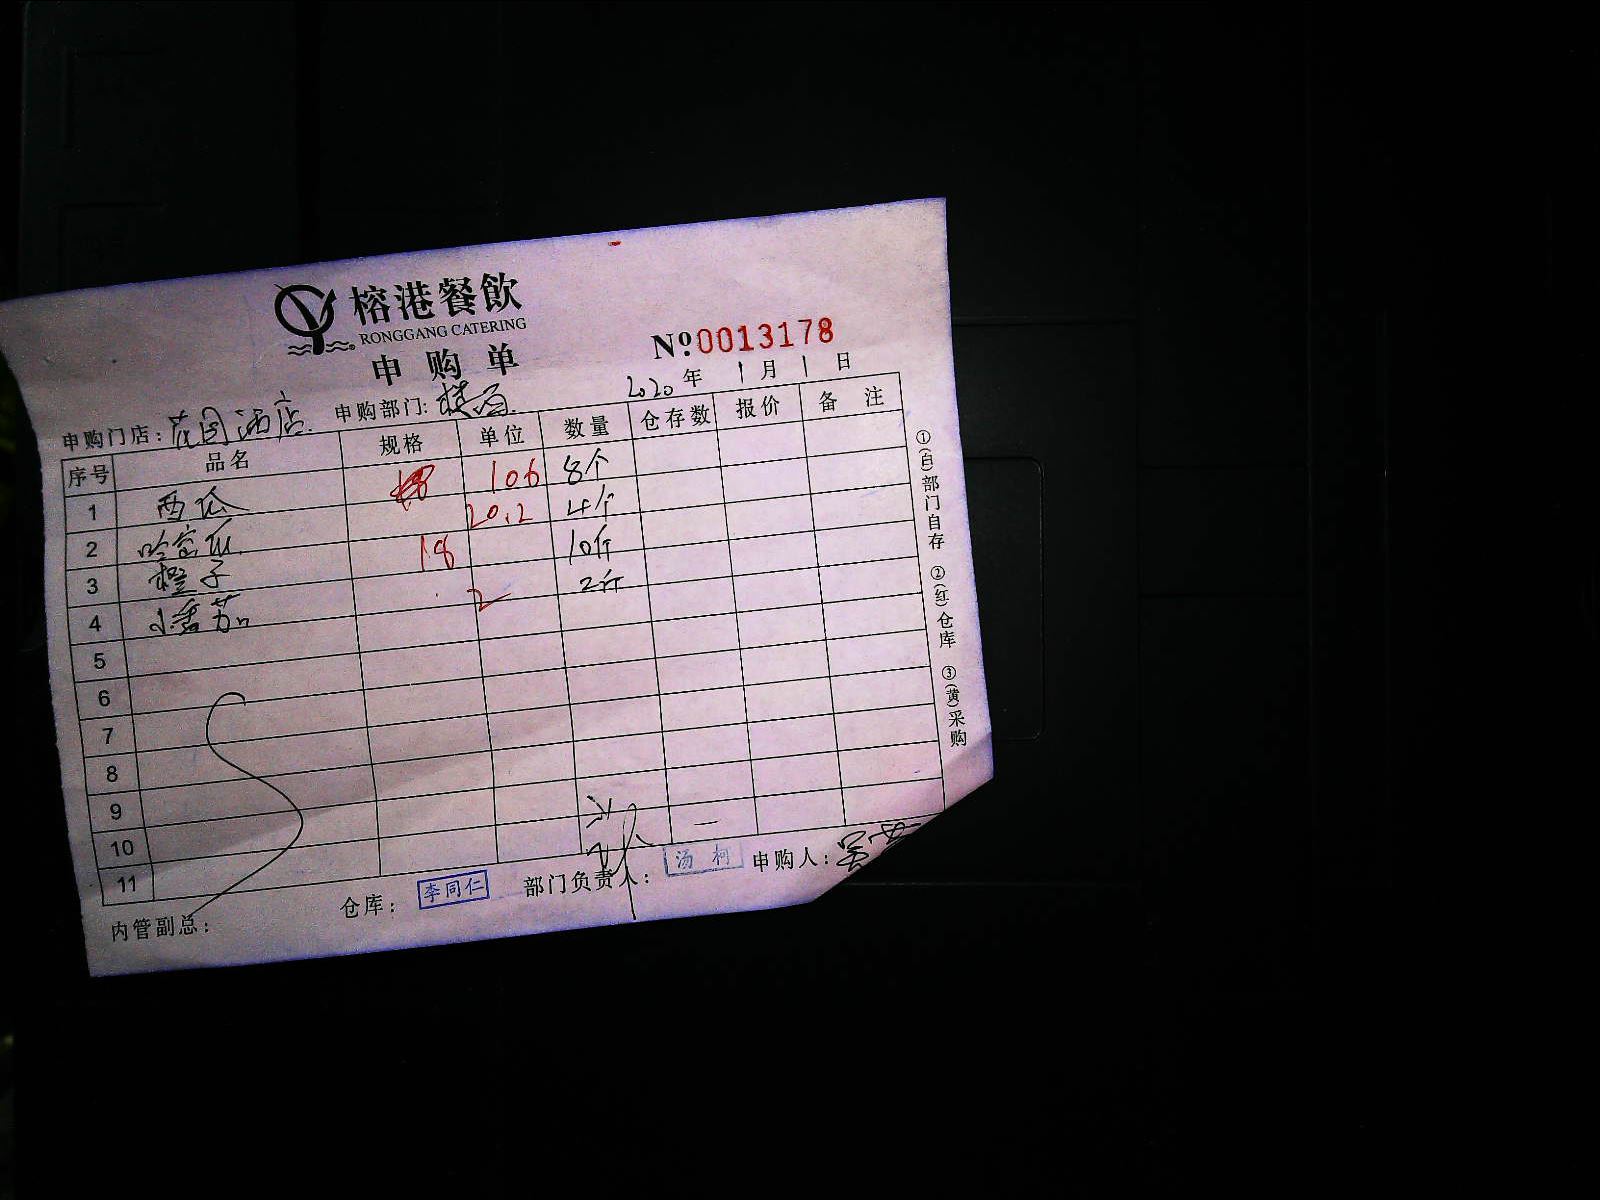 榕港餐飲
RONGGANG CATERING
申购单
№0013178
2020年 1月 1日
申购门店：花园酒店 申购部门：楼面
序号 品名 规格 单位 数量 仓存数 报价 备 注
1 西瓜 106 8个
2 哈密瓜 20.2 4个
3 橙子 18 10斤
4 小番茄 2 2斤
5
6
7
8
9
10
11
内管副总： 仓库：李同仁 部门负责人：汤柯 申购人：
①(白)部门自存 ②(红)仓库 ③(黄)采购